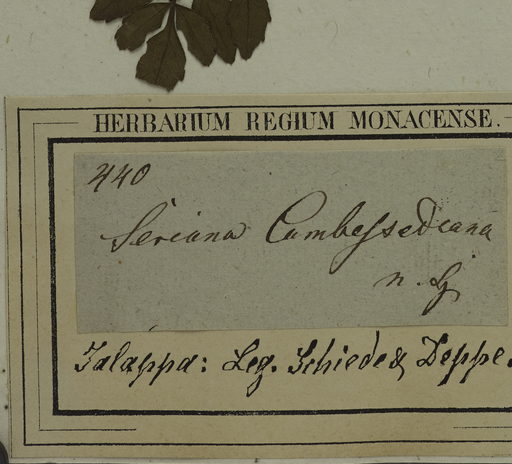 HERBARIUM REGIUM MONACENSE.
440
Seriana Cambessedeana
n. sp
Jalappa: Leg. Schiede & Deppe.